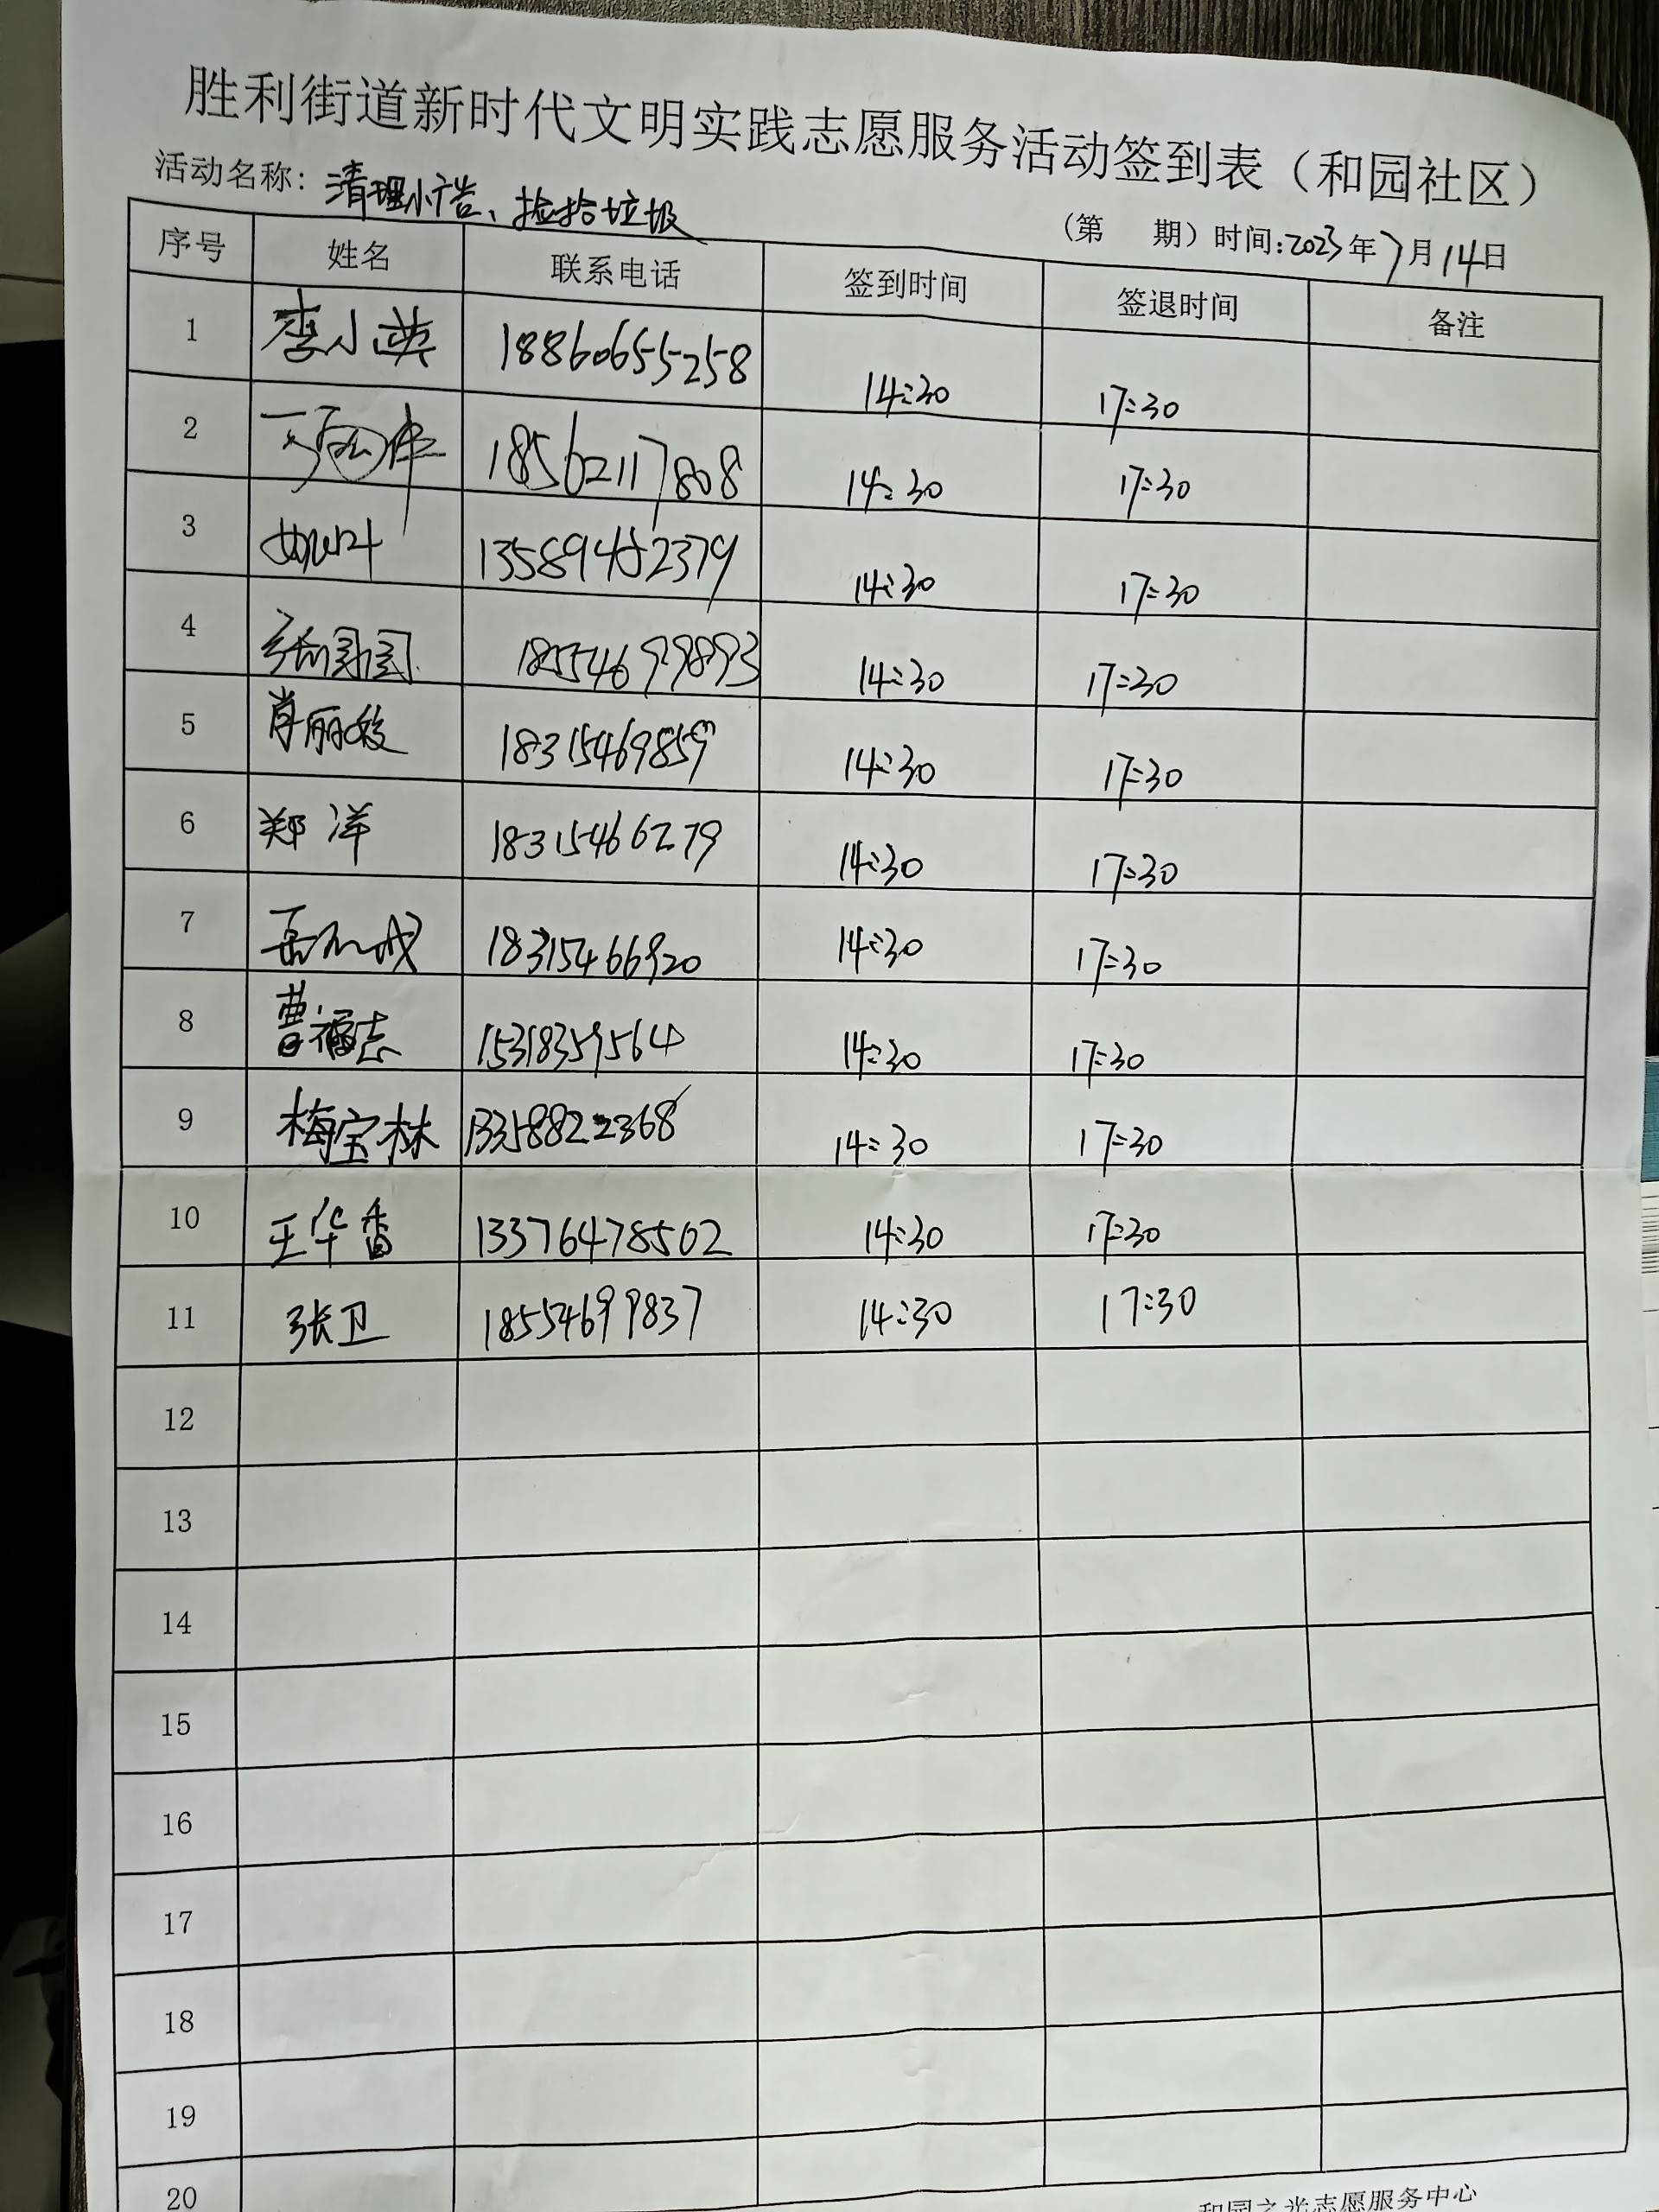 胜利街道新时代文明实践志愿服务活动签到表（和园社区）
活动名称：清理小广告、捡拾垃圾
（第 期）时间：2023年7月14日
序号 姓名 联系电话 签到时间 签退时间 备注
1 李小英 18860655258 14:30 17:30
2 18562117808 14:30 17:30
3 14:30 17:30
4 18554699893 14:30 17:30
5 肖丽姣 18315469859 14:30 17:30
6 郑洋 18315466279 14:30 17:30
7 18315466920 14:30 17:30
8 曹福志 15318359564 14:30 17:30
9 梅宝林 14:30 17:30
10 王华香 13376478502 14:30 17:30
11 张卫 18554699837 14:30 17:30
12
13
14
15
16
17
18
19
20
和园之光志愿服务中心